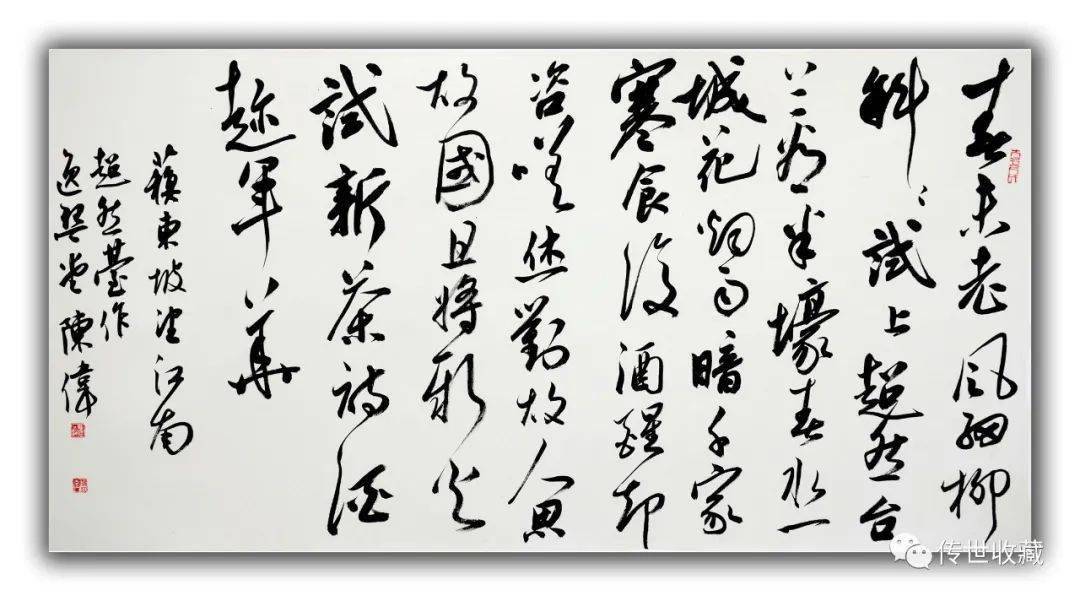 春未老風細柳
斜斜試上超然台
上看半壕春水一
城花烟雨暗千家
寒食後酒醒却
咨嗟休對故人思
故國且將新火
試新茶詩酒
趁年華
蘇東坡望江南
超然臺作
陳偉
传世收藏